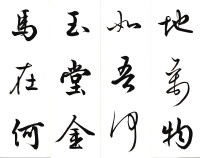 地萬物
如吾何
玉堂金
馬在何